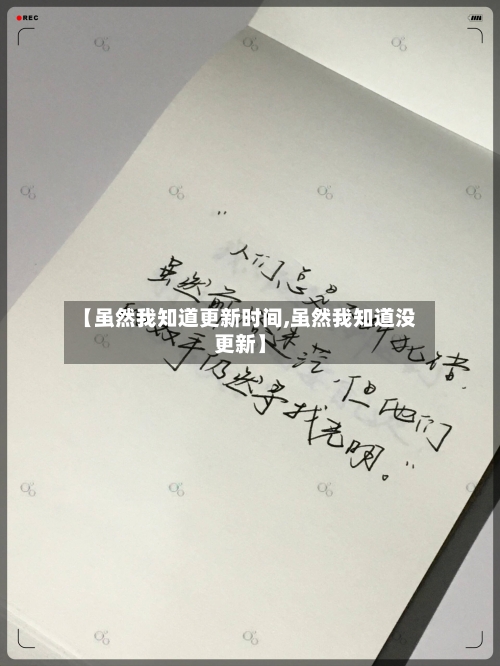 REC
"人们总是
虽然前迷茫,但他们
手仍然寻找光明。"
【虽然我知道更新时间,虽然我知道没
更新】